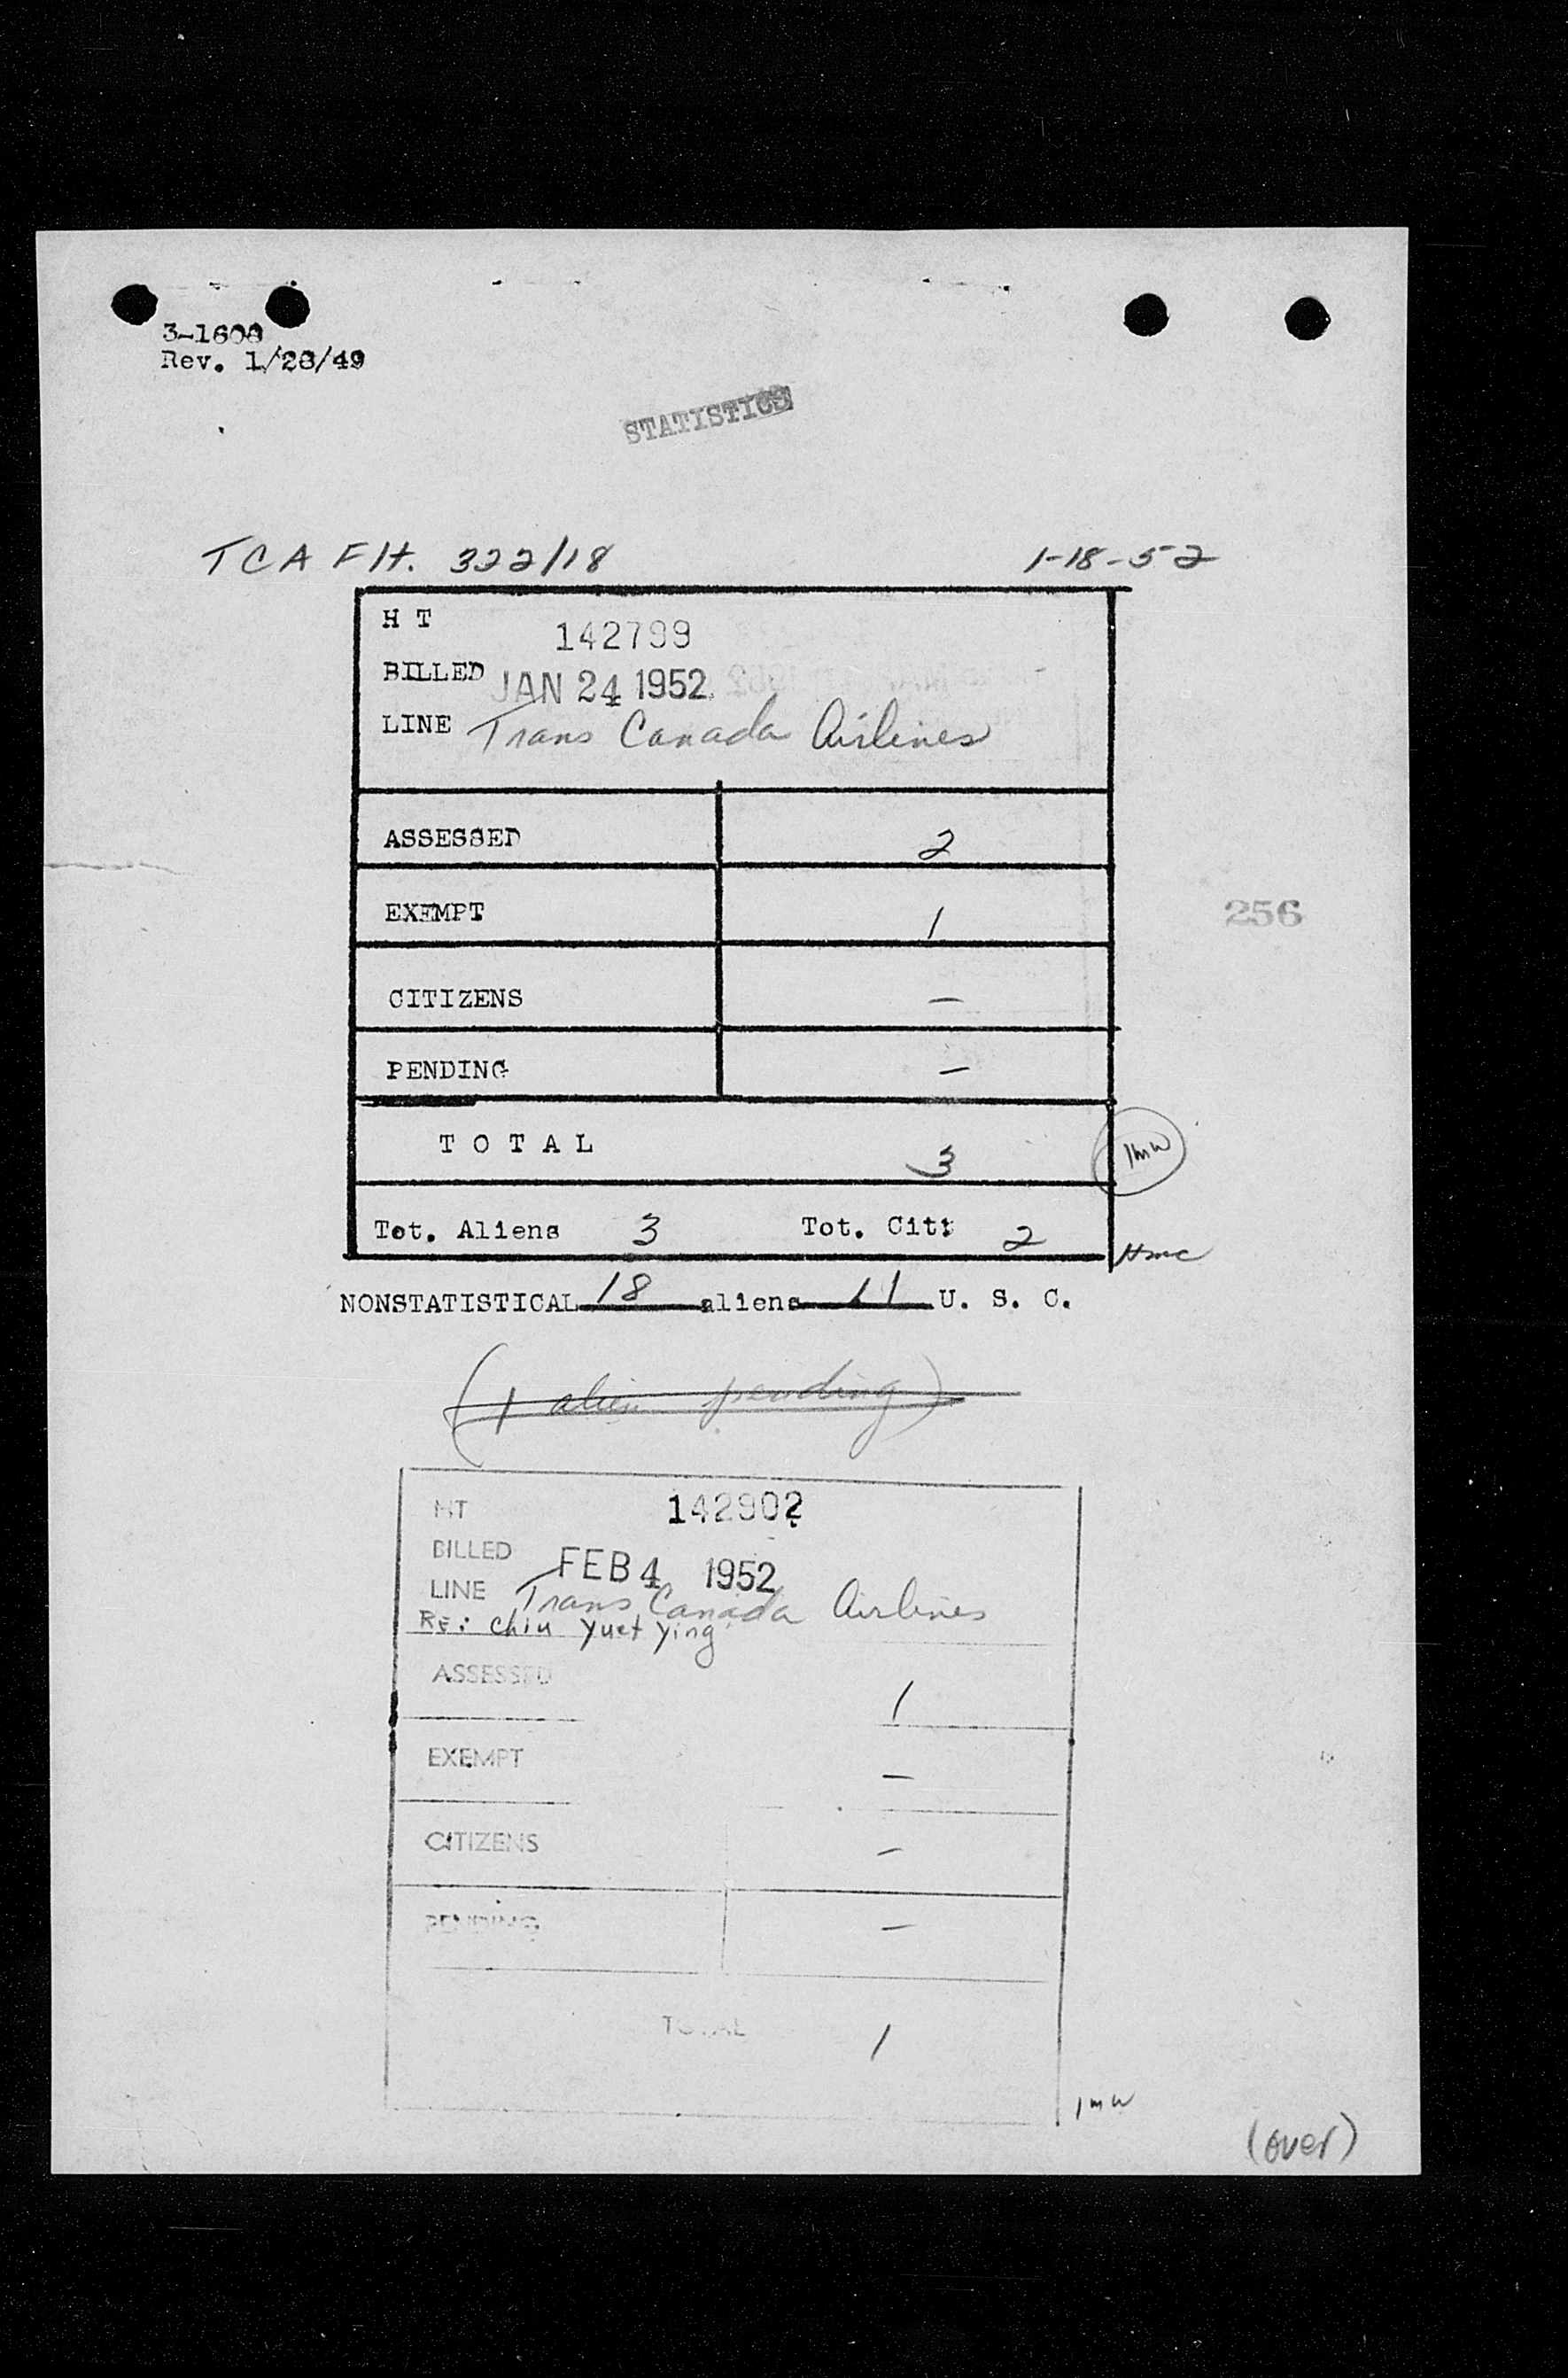 3-1608
Rev. 1/28/49
STATISTICS
TCA Flt. 322/18 1-18-52
H T 142799
BILLED JAN 24 1952
LINE Trans Canada Airlines
ASSESSED 2
EXEMPT 1
256
CITIZENS —
PENDING —
T O T A L 3
Tot. Aliens 3 Tot. Cit: 2
NONSTATISTICAL 18 aliens 11 U. S. C.
(1 alien pending)
HT 142902
BILLED FEB 4 1952
LINE Trans Canada Airlines
RE: Chiu Yuet Ying
ASSESSED 1
EXEMPT —
CITIZENS —
PENDING —
TOTAL 1
(over)